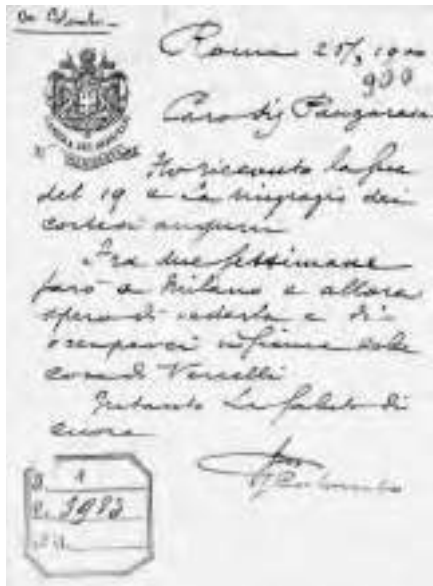 Roma 25/3 1900
900
Caro Sig Panzarasa
Ho ricevuto la sua
del 19 e La ringrazio dei
cortesi auguri
Fra due settimane
sarò a Milano e allora
spero di vederla e di
occuparci insieme delle
cose di Vercelli
Intanto La saluto di
cuore
Colombo
1